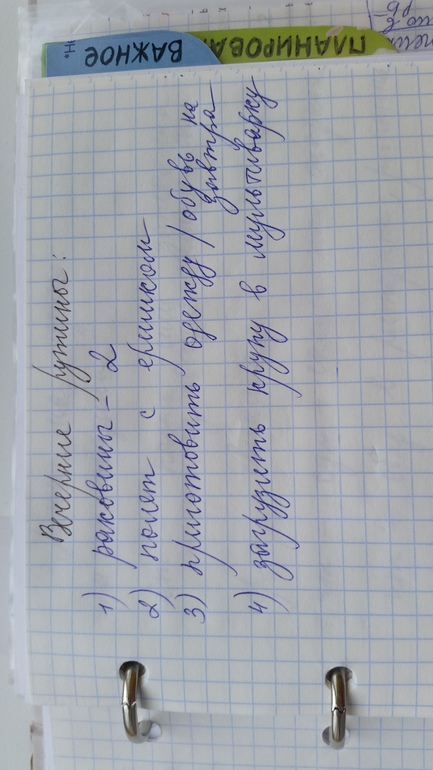 ВАЖНОЕ
ПЛАНИРОВА
Вечерние рутины:
1) раковины - 2
2) полет с ершиком
3) приготовить одежду / обувь на
завтра
4) загрузить крупу в мультиварку